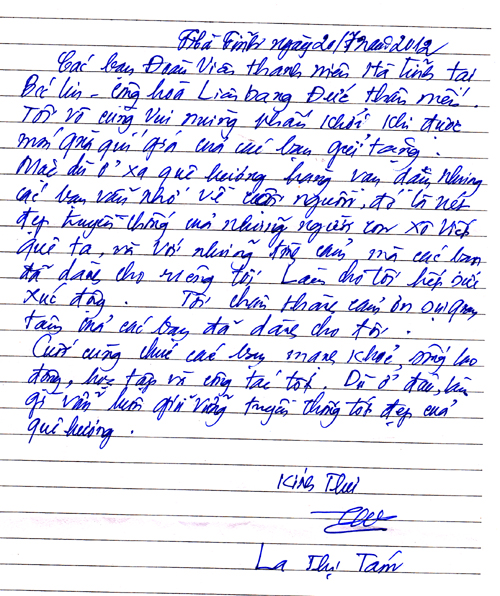 Hà Tĩnh ngày 20/7 năm 2012
Các bạn Đoàn viên thanh niên Hà Tĩnh tại
Béc lin - Cộng hoà Liên bang Đức thân mến.
Tôi vô cùng vui mừng phấn khởi khi được
món quà quí giá của các bạn gửi tặng.
Mặc dù ở xa quê hương hàng vạn dặm nhưng
các bạn vẫn nhớ về cội nguồn, đó là nét
đẹp truyền thống của những người con xô viết
quê ta, và với những tình cảm mà các bạn
đã dành cho riêng tôi, Làm cho tôi hết sức
xúc động. Tôi chân thành cảm ơn sự quan
tâm của các bạn đã dành cho tôi.
Cuối cùng chúc các bạn mạnh khoẻ, sống lao
động, học tập và công tác tốt. Dù ở đâu, làm
gì vẫn luôn giữ vững truyền thống tốt đẹp của
quê hương.
Kính Thư
La Thị Tám